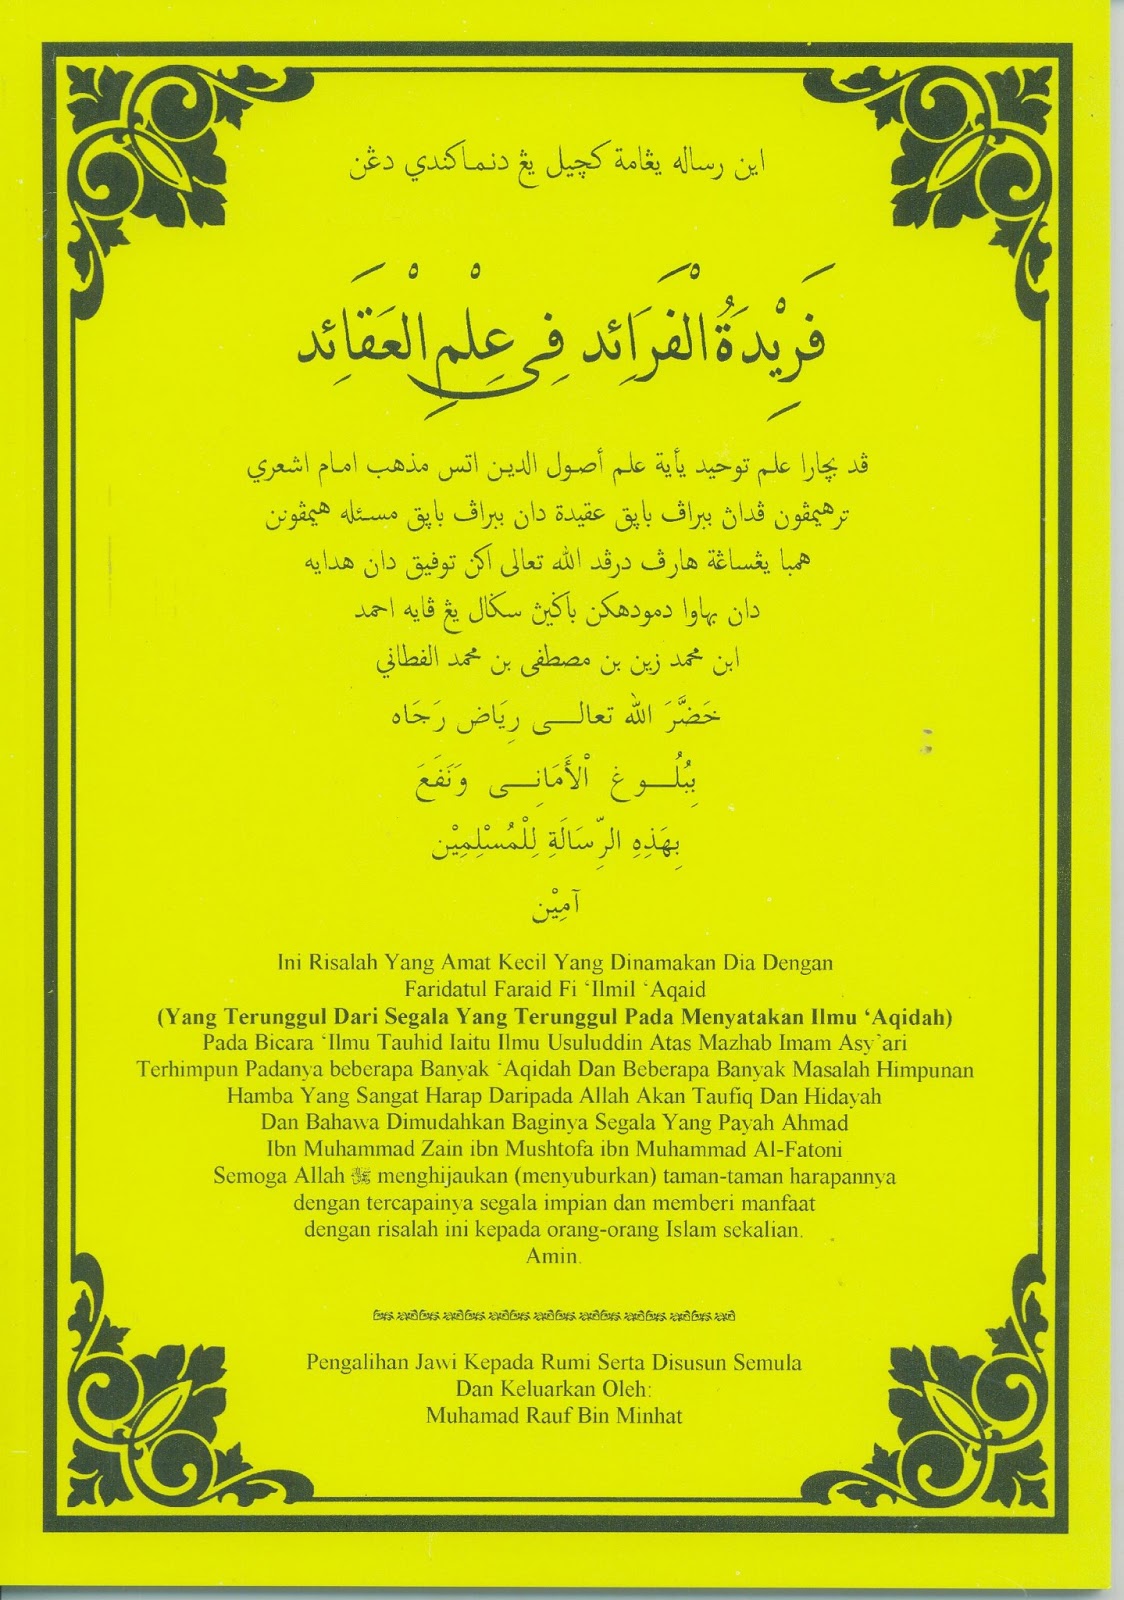 اين رساله يڠامة كچيل يڠ دنماكندي دڠن
فَرِيْدَةُ الْفَرَائِد فِي عِلْمِ الْعَقَائِد
ڤد بچارا علم توحيد يأية علم أصول الدين اتس مذهب امام اشعري
ترهيمڤون ڤداڽ ببراڤ باڽق عقيدة دان ببراڤ باڽق مسئله هيمڤونن
همبا يڠساڠة هارڤ درڤد الله تعالى اكن توفيق دان هدايه
دان بهاوا دمودهكن باكيڽ سكال يڠ ڤايه احمد
ابن محمد زين بن مصطفى بن محمد الفطاني
خَضَّرَ الله تعالـــى رِيَاض رَجَاه
بِبُلُـــوغ الْأَمَانِـــى وَنَفَعَ
بِهَذِهِ الرِّسَالَةِ لِلْمُسْلِمِيْن
آمِيْن
Ini Risalah Yang Amat Kecil Yang Dinamakan Dia Dengan
Faridatul Faraid Fi ‘Ilmil ‘Aqaid
(Yang Terunggul Dari Segala Yang Terunggul Pada Menyatakan Ilmu ‘Aqidah)
Pada Bicara ‘Ilmu Tauhid Iaitu Ilmu Usuluddin Atas Mazhab Imam Asy’ari
Terhimpun Padanya beberapa Banyak ‘Aqidah Dan Beberapa Banyak Masalah Himpunan
Hamba Yang Sangat Harap Daripada Allah Akan Taufiq Dan Hidayah
Dan Bahawa Dimudahkan Baginya Segala Yang Payah Ahmad
Ibn Muhammad Zain ibn Mushtofa ibn Muhammad Al-Fatoni
Semoga Allah ﷻ menghijaukan (menyuburkan) taman-taman harapannya
dengan tercapainya segala impian dan memberi manfaat
dengan risalah ini kepada orang-orang Islam sekalian.
Amin.
Pengalihan Jawi Kepada Rumi Serta Disusun Semula
Dan Keluarkan Oleh:
Muhamad Rauf Bin Minhat